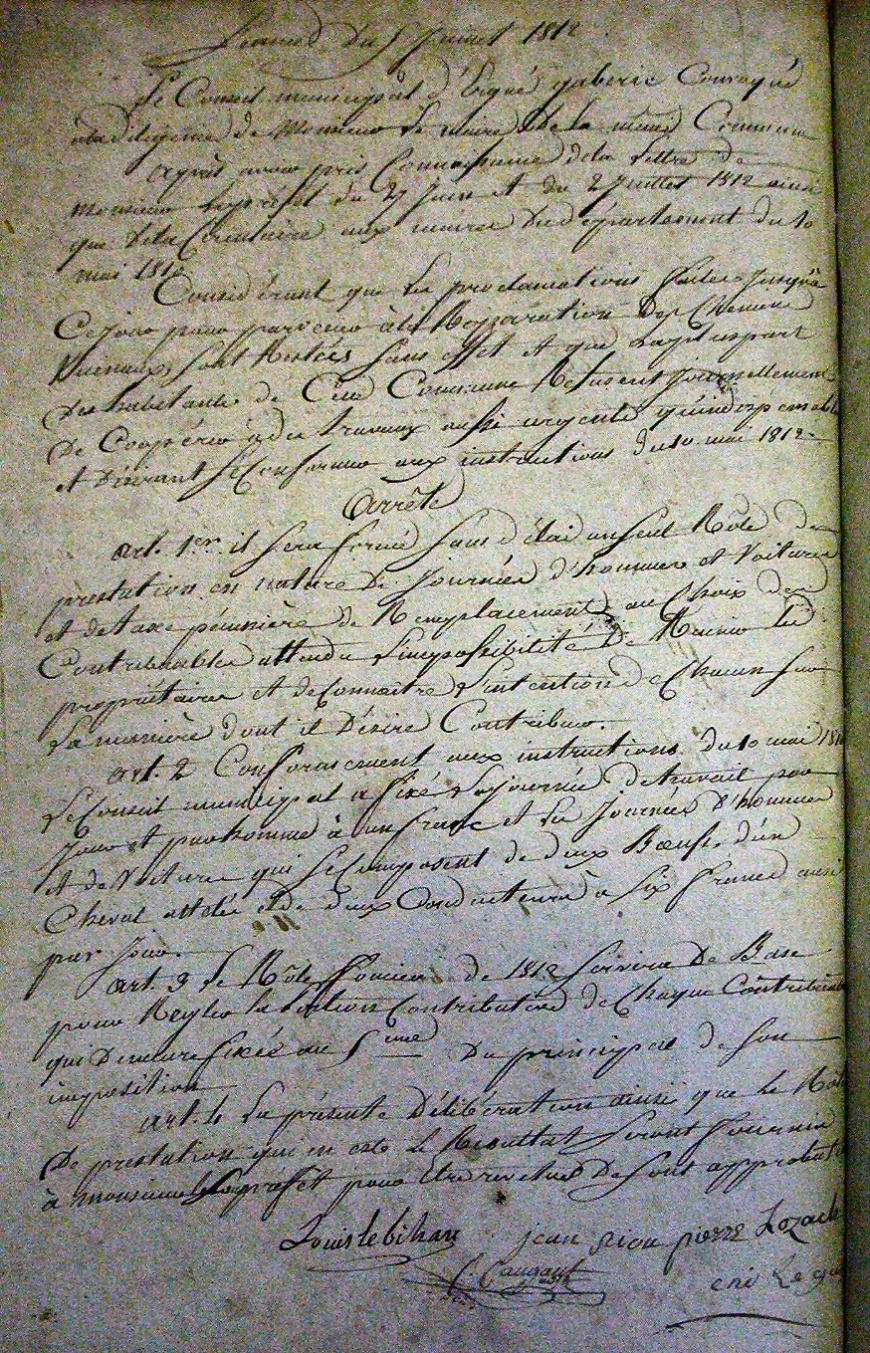 Séance du 5 Juillet 1812
Le Conseil municipal d'Ergué gaberic Convoqué
à la diligence de Monsieur Le maire de la même Commune
après avoir pris Connaissance de la Lettre de
Monsieur Le préfet du 27 Juin et du 2 Juillet 1812 ainsi
que de la Circulaire aux maires du département du 10
mai 1812
Considérant que les proclamations faites Jusqu'à
Ce jour pour parvenir à la Réparation des Chemins
Vicinaux sont Restées sans effet et que la plus part
des habitants de Cette Commune Refusent Journellement
De Coopérer à des travaux aussi urgents qu'indispensables
et Désirant se Conformer aux instructions du 10 mai 1812
arrête
art. 1er. il sera formé sans délai un seul Rôle de
prestation en nature de Journées d'hommes et Voitures
et de taxe pécunière de Remplacement au Choix des
Contribuables attendu L'impossibilité de Réunir les
propriétaires et de Connaître L'intention de Chacun sur
La manière dont il Désire Contribuer.
art. 2 Conformement aux instructions du 10 mai 1812
Le Conseil municipal a fixé La journée de travail par
Jour et par homme à un franc et La Journée d'hommes
et de Voiture qui se Composent de deux Bœufs, d'un
Cheval attelés et de deux Conducteurs à six francs aussi
par Jour.
art. 3 Le Rôle foncier de 1812 servira De Base
pour Regler la Contributive de Chaque Contribuable
qui Demeure fixée au 5ème Du principal de son
imposition
art. 4 La présente Délibération ainsi que le Rôle
De prestation qui en est le Resultat seront fournis
à monsieur Le préfet pour être revêtus De son approbation
Louis le bihan jean riou pierre Lozach